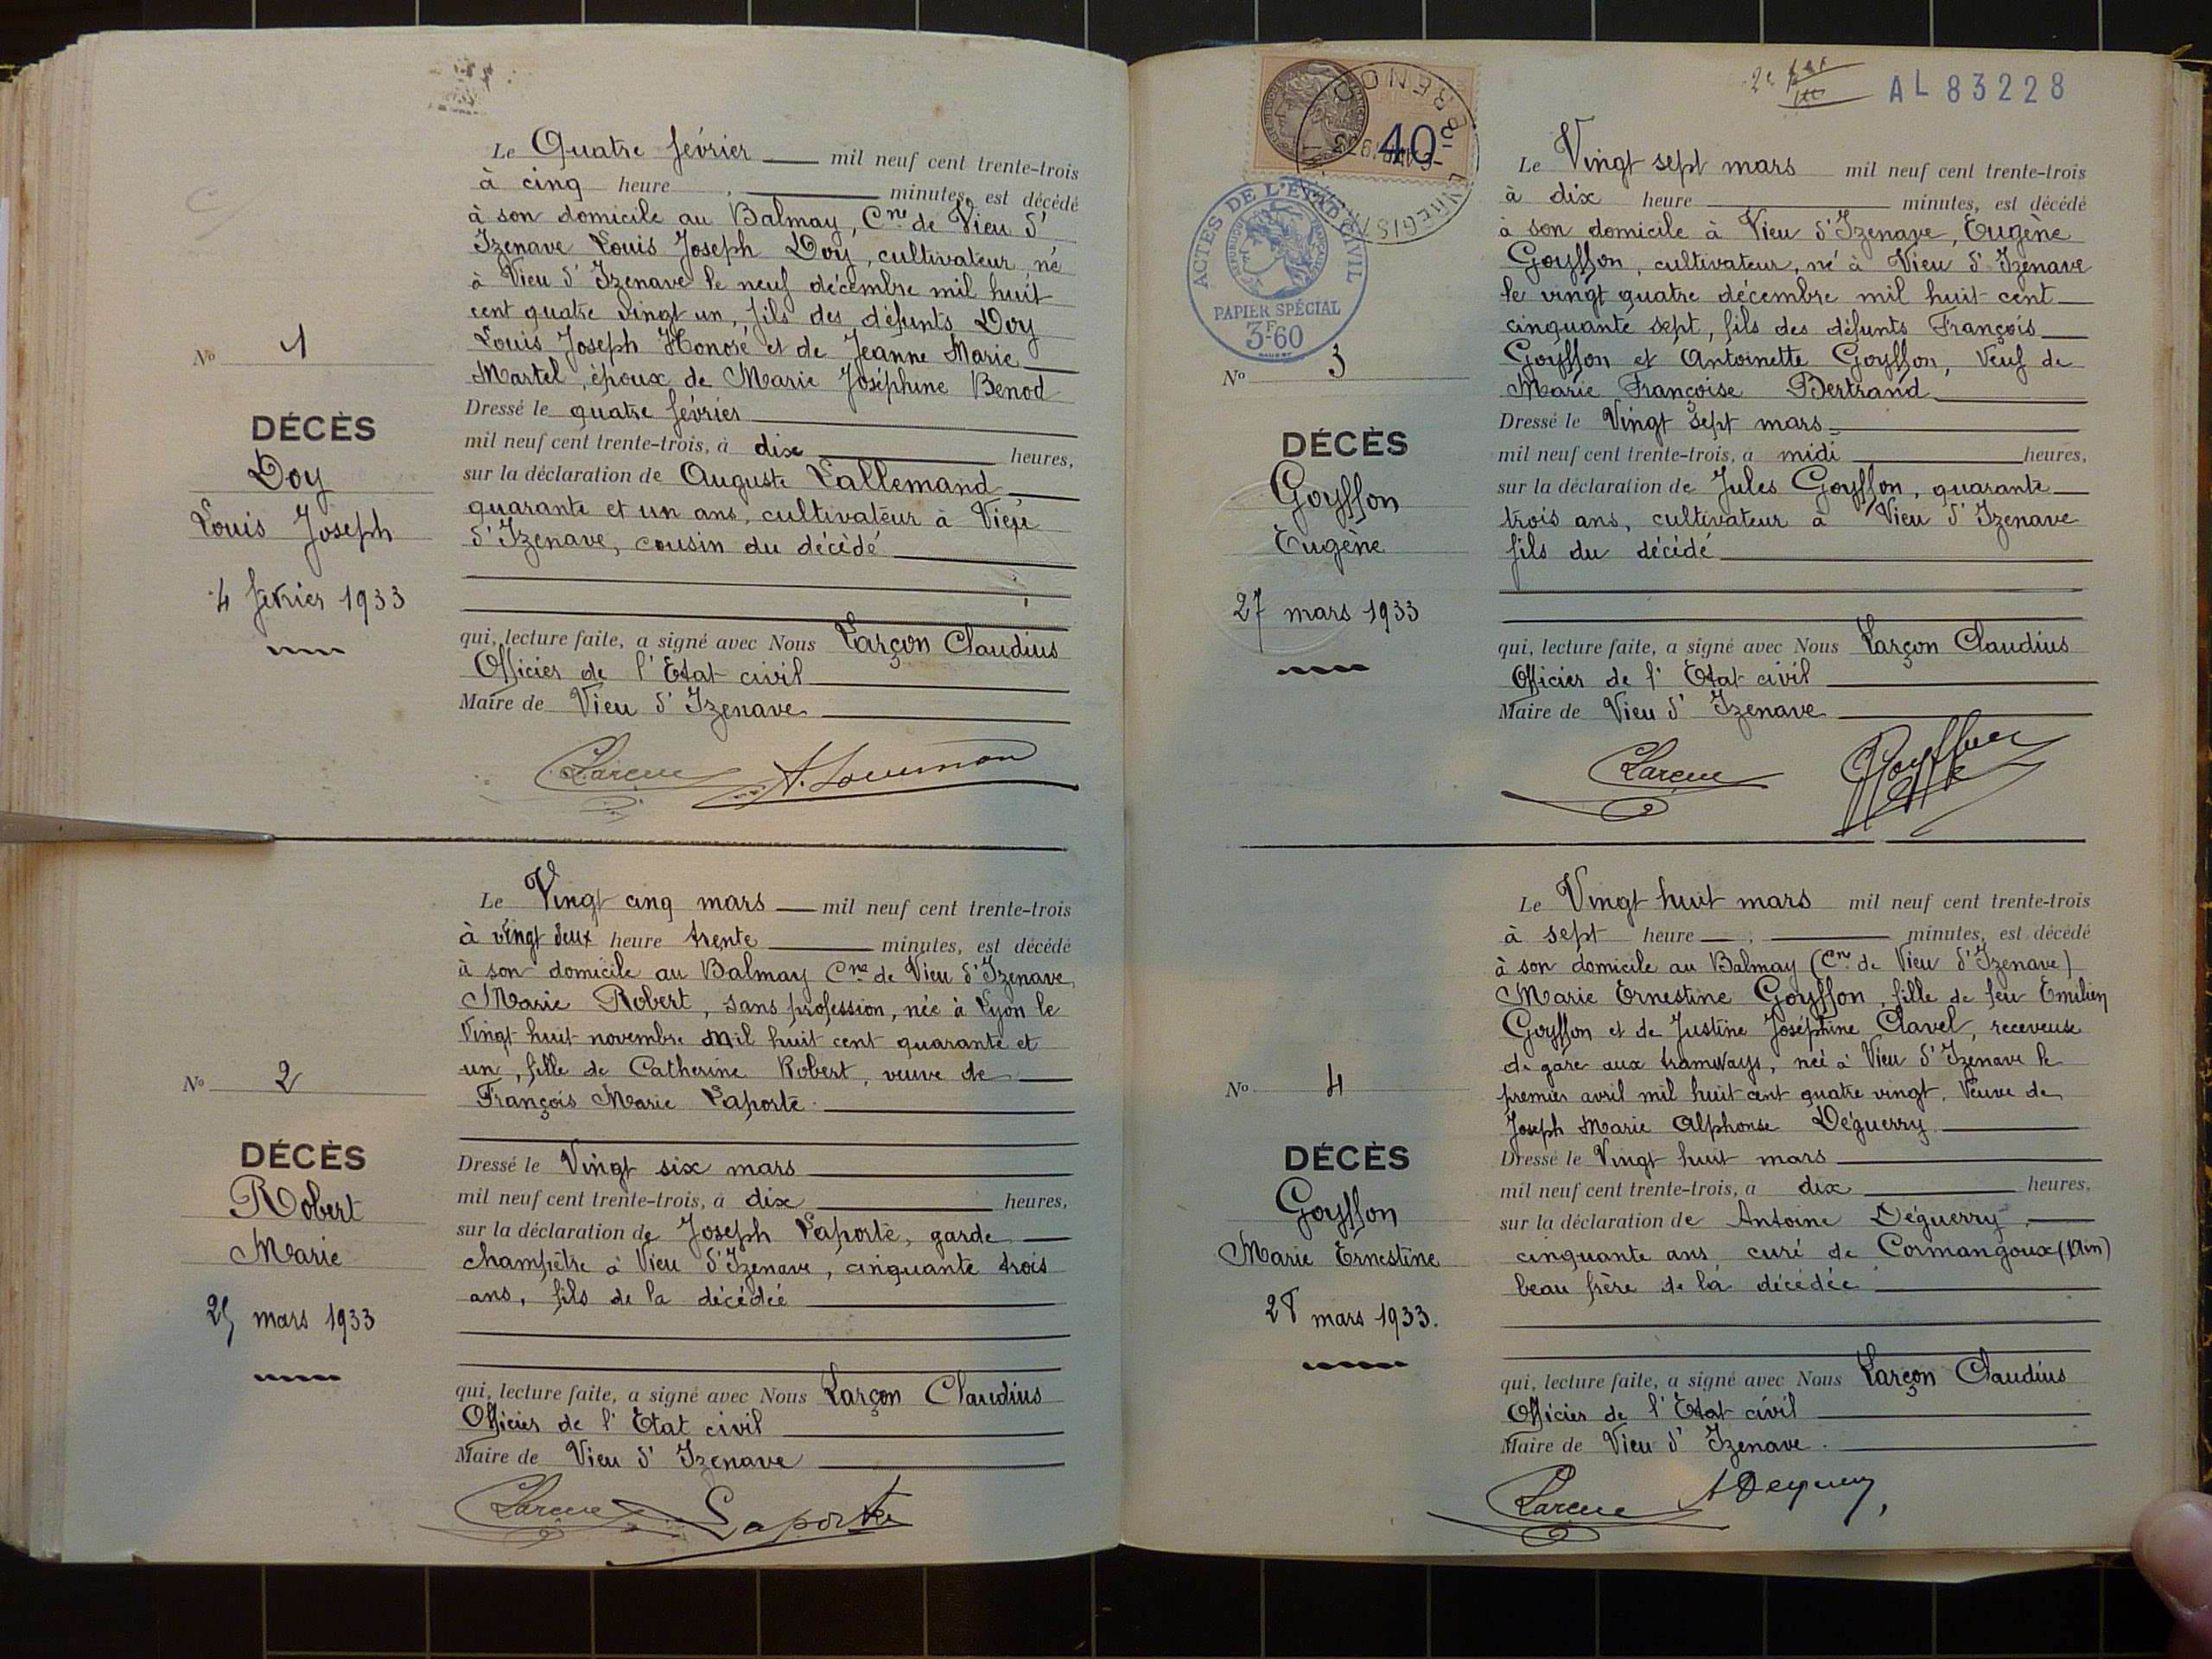 Le Quatre février mil neuf cent trente-trois
à cinq heure, minutes, est décédé
à son domicile au Balmay, Cne de Vieu d'
Izenave Louis Joseph Doy, cultivateur, né
à Vieu d'Izenave le neuf décembre mil huit
cent quatre vingt un, fils des défunts Doy
Louis Joseph Honoré et de Jeanne Marie
Martel, époux de Marie Joséphine Benod
Dressé le quatre février
mil neuf cent trente-trois, à dix heures,
sur la déclaration de Auguste Lallemand
quarante et un ans, cultivateur à Vieu
d'Izenave, cousin du décédé
qui, lecture faite, a signé avec Nous Larçon Claudius
Officier de l'Etat civil
Maire de Vieu d'Izenave
No 1
DÉCÈS
Doy
Louis Joseph
4 février 1933
Le Vingt cinq mars mil neuf cent trente-trois
à vingt deux heure trente minutes, est décédé
à son domicile au Balmay Cne de Vieu d'Izenave,
Marie Robert, sans profession, née à Lyon le
Vingt huit novembre mil huit cent quarante et
un, fille de Catherine Robert, veuve de
François Marie Laporte.
Dressé le Vingt six mars
mil neuf cent trente-trois, à dix heures,
sur la déclaration de Joseph Laporte, garde
champêtre à Vieu d'Izenave, cinquante trois
ans, fils de la décédée
qui, lecture faite, a signé avec Nous Larçon Claudius
Officier de l'Etat civil
Maire de Vieu d'Izenave
Laporte
No 2
DÉCÈS
Robert
Marie
25 mars 1933
AL 83228
40
ACTES DE L'ÉTAT CIVIL
PAPIER SPÉCIAL
3F60
Le Vingt sept mars mil neuf cent trente-trois
à dix heure minutes, est décédé
à son domicile à Vieu d'Izenave, Eugène
Goyffon, cultivateur, né à Vieu d'Izenave
le vingt quatre décembre mil huit cent
cinquante sept, fils des défunts François
Goyffon et Antoinette Goyffon, Veuf de
Marie Françoise Bertrand
Dressé le Vingt sept mars
mil neuf cent trente-trois, à midi heures,
sur la déclaration de Jules Goyffon, quarante
trois ans, cultivateur à Vieu d'Izenave
fils du décédé
qui, lecture faite, a signé avec Nous Larçon Claudius
Officier de l'Etat civil
Maire de Vieu d'Izenave
No 3
DÉCÈS
Goyffon
Eugène
27 mars 1933
Le Vingt huit mars mil neuf cent trente-trois
à sept heure, minutes, est décédé
à son domicile au Balmay (Cne de Vieu d'Izenave)
Marie Ernestine Goyffon, fille de feu Emilien
Goyffon et de Justine Joséphine Clavel, receveuse
de gare aux tramways, née à Vieu d'Izenave le
premier avril mil huit cent quatre vingt. Veuve de
Joseph Marie Alphonse Déguerry
Dressé le Vingt huit mars
mil neuf cent trente-trois, à dix heures,
sur la déclaration de Antoine Déguerry,
cinquante ans, curé de Cormangoux (Ain)
beau frère de la décédée
qui, lecture faite, a signé avec Nous Larçon Claudius
Officier de l'Etat civil
Maire de Vieu d'Izenave.
No 4
DÉCÈS
Goyffon
Marie Ernestine
28 mars 1933.